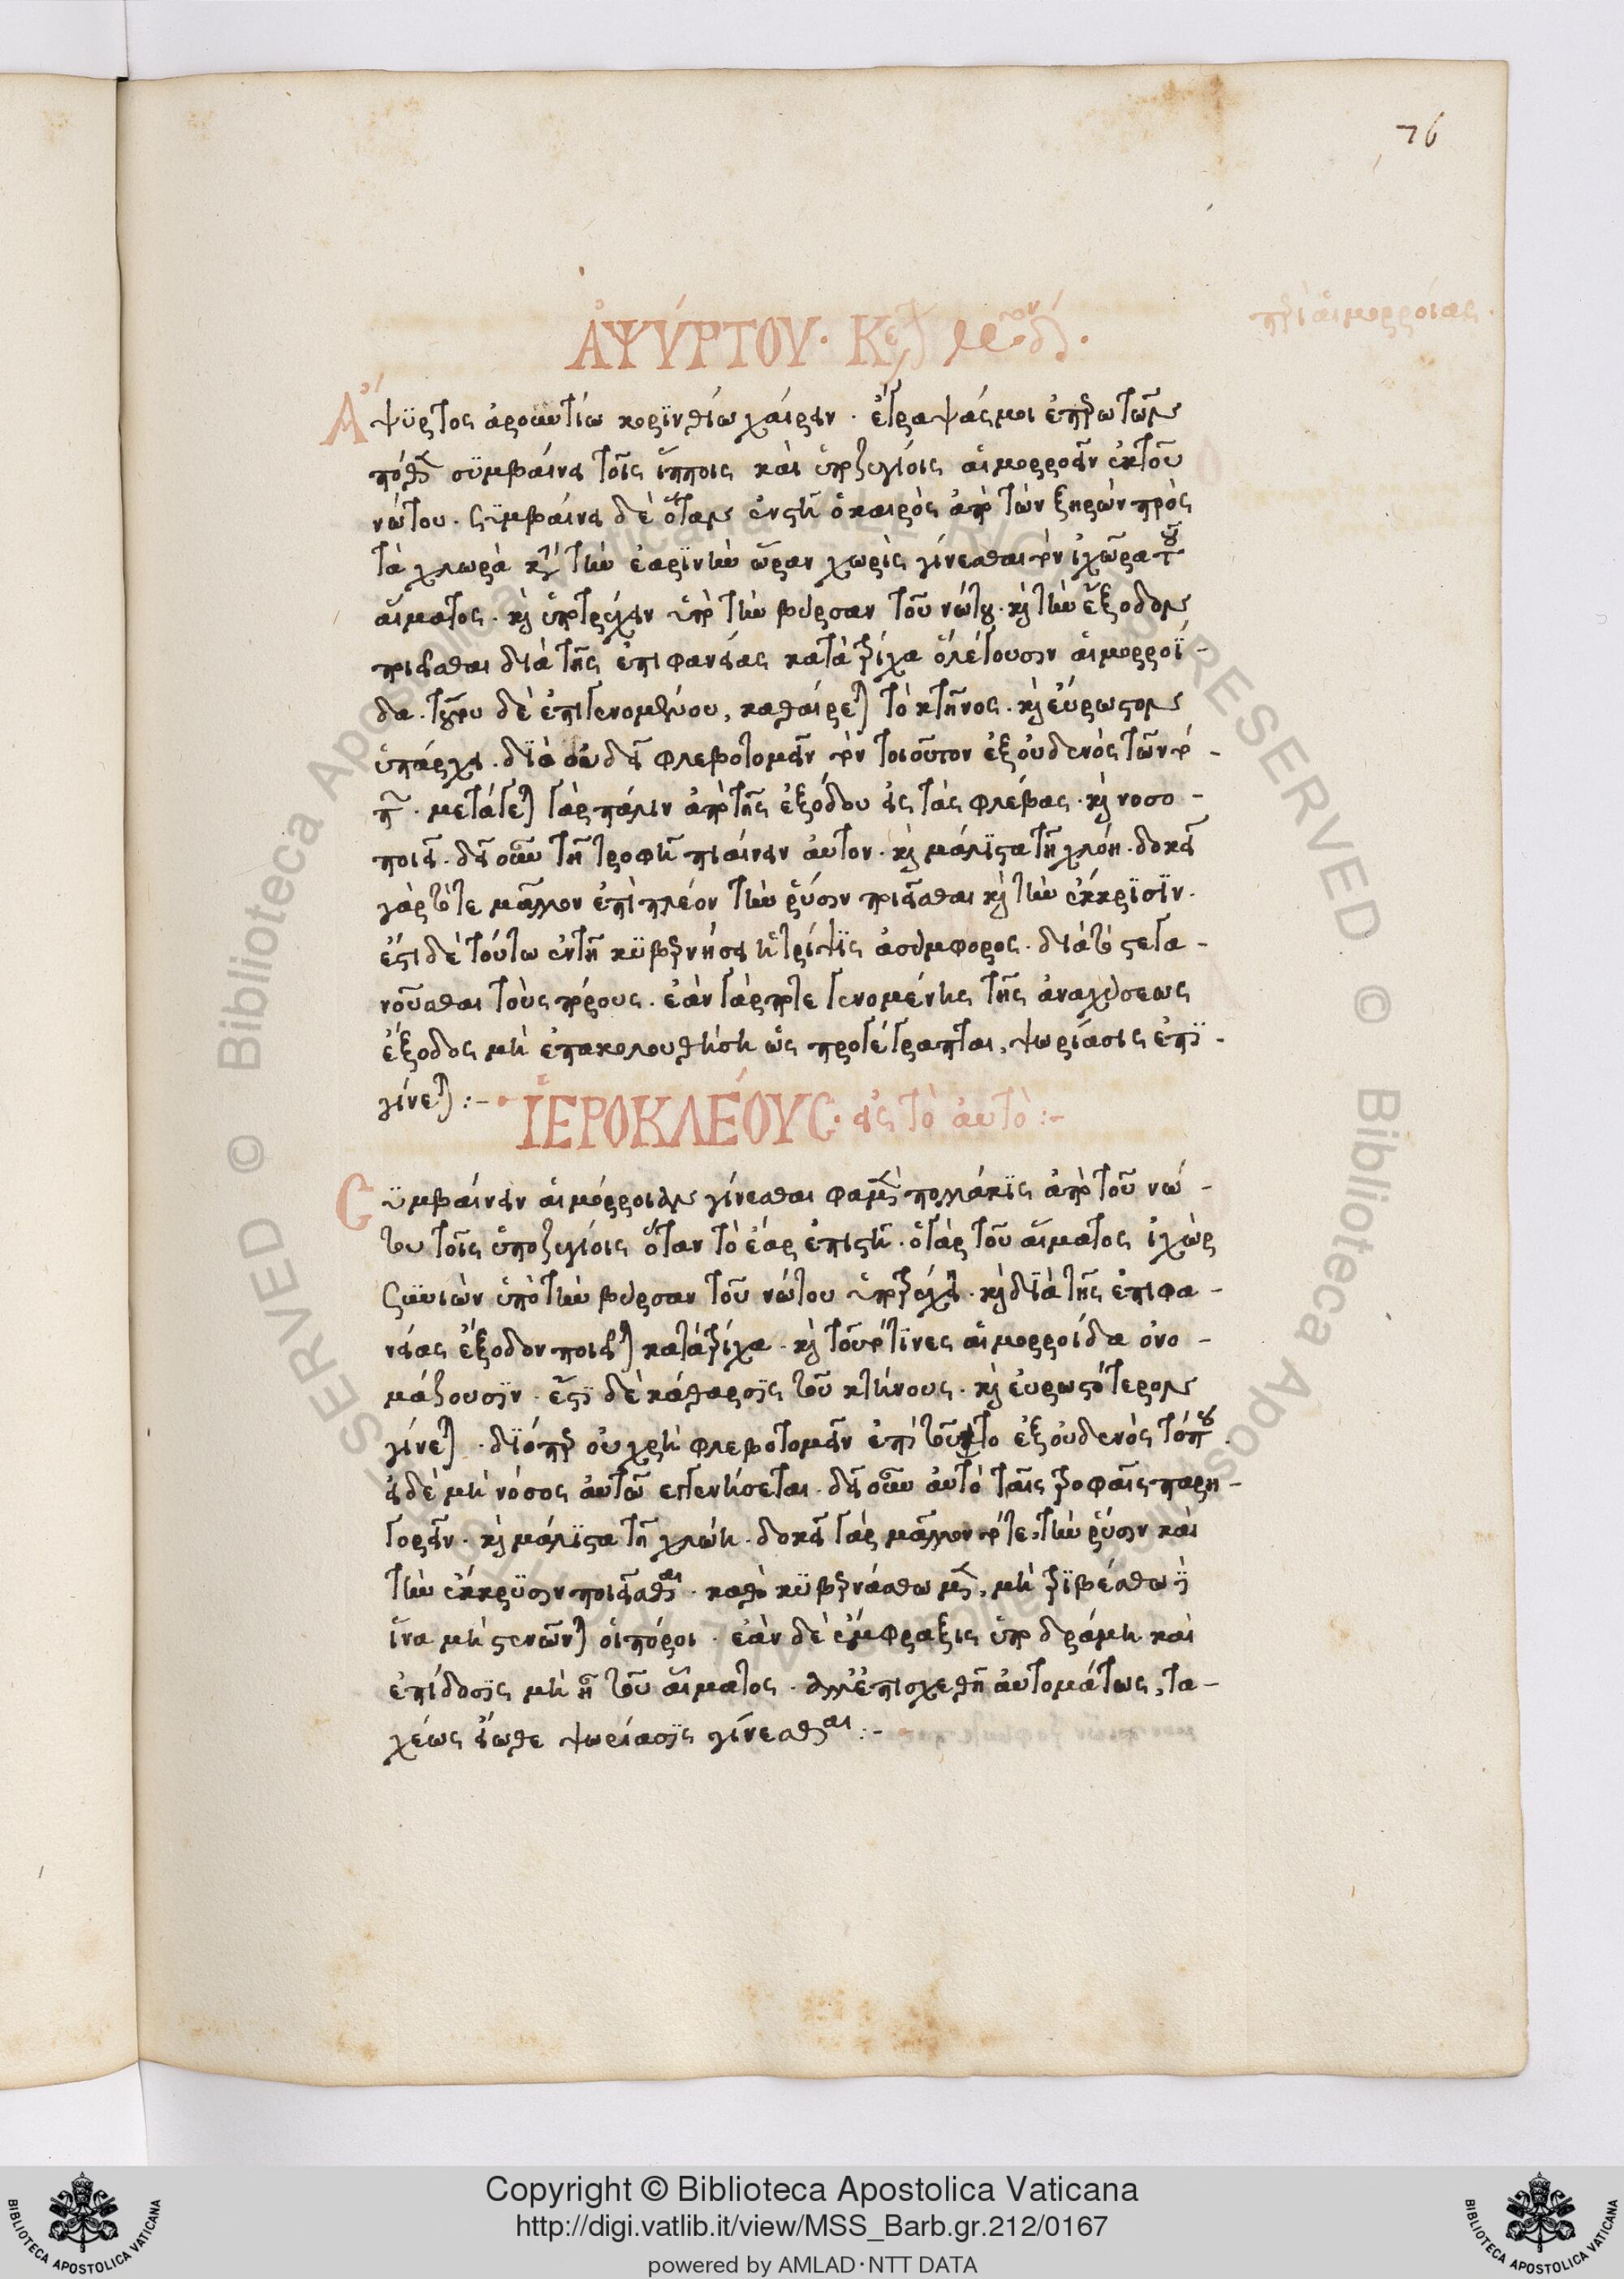 76
ΑΨΥΡΤΟΥ·
περὶ αἱμορροίας·
Ἀψϋρτος κορϊνθίω χαίρειν · ἔγραψάς μοι ἐπερωτῶν
πόθεν σϋμβαίνει τοῖς ἵπποις καὶ ὑποζυγίοις αἱμορροεῖν ἐκ τοῦ
νώτου · Σϋμβαίνει δὲ ὅταν ἐνστῆ ὁ καιρὸς ἀπὸ τῶν ξηρῶν πρὸς
τὰ χλωρὰ κατὰ τὴν ἐαρϊνὴν ὥραν χωρὶς γίνεσθαι τὸν ἰχῶρα τοῦ
αἵματος · καὶ ὑποτρέχειν ὑπὸ τὴν βύρσαν τοῦ νώτου · καὶ τὴν ἔξοδον
ποιεῖσθαι διὰ τῆς ἐπιφανείας κατὰ τρίχα ὃ λέγουσιν αἱμορροΐ-
δα · τούτου δὲ ἐπιγενομένου, καθαίρεται τὸ κτῆνος · καὶ εὔρωστον
ὑπάρχει · δϊὰ οὐ δεῖ φλεβοτομεῖν τὸν τοιοῦτον ἐξ οὐδενὸς τῶν τό-
π · μετάγεται γὰρ πάλιν ἀπὸ τῆς ἐξόδου εἰς τὰς φλέβας · καὶ νοσο-
ποιεῖ · δεῖ οὖν τῆ τροφῆ πιαίνειν αὐτον · καὶ μάλϊστα τῆ χλόη · δοκεῖ
γὰρ τότε μᾶλλον ἐπὶ πλέον τὴν ῥύσιν ποιεῖσθαι καὶ τὴν ἔκκρϊσϊν ·
ἔστι δὲ τούτω ἐν τῆ κϋβερνήσει ἡ τρίψϊς ἀσύμφορος · διὰ τὸ στεγα-
νοῦσθαι τοὺς πόρους · ἐὰν γάρ ποτε γενομένης τῆς ἀναχύσεως
ἔξοδος μὴ ἐπακολουθήση ὡς προγέγραπται, ψωρίασις ἐπϊ-
γίνεται :-
ἹΕΡΟΚΛΕΟΥΣ · εἰς τὸ αὐτὸ :-
Σϋμβαίνειν αἱμόρροιαν γίνεσθαι φαμὲν πολλάκϊς ἀπὸ τοῦ νώ-
του τοῖς ὑποζυγίοις ὅταν τὸ ἔαρ ἐπιστῆ · ὁ γὰρ τοῦ αἵματος ἰχὼρ
ὑπὸ τὴν βύρσαν τοῦ νώτου ὑποτρέχει · καὶ δϊὰ τῆς ἐπιφα-
νείας ἔξοδον ποιεῖται κατὰ τρίχα · καὶ τοῦτό τϊνες αἱμορροίδα ὀνο-
μάζουσϊν · ἔστϊ δὲ κάθαρσϊς τοῦ κτήνους · καὶ εὐρωστότερον
γίνεται · δϊόπερ οὐ χρὴ φλεβοτομεῖν ἐπὶ τοῦτο ἐξ οὐδενὸς τόπου ·
εἰ δὲ μὴ νόσος αὐτῶ εγγενήσεται · δεῖ οὖν αὐτὸ ταῖς τροφαῖς παρη-
γορεῖν · καὶ μάλϊστα τῆ χλώη · δοκεῖ γὰρ μᾶλλον τότε, τὴν ῥύσιν καὶ
τὴν ἔκκρϋσιν ποιεῖσθαι · κϋβερνάσθω μὲν, μὴ τρϊβέσθω
ἵνα μὴ στενῶνται οἱ πόροι · ἐὰν δὲ ἔμφραξις ὑποδράμη καὶ
ἐπίδοσϊς μὴ ἦ τοῦ αἵματος · ἀλλ' ἐπισχεθῆ αὐτομάτως, τα-
χέως εἴωθε ψωρίασϊς γίνεσθαι :-
Copyright © Biblioteca Apostolica Vaticana
http://digi.vatlib.it/view/MSS_Barb.gr.212/0167
powered by AMLAD · NTT DATA
BIBLIOTECA APOSTOLICA VATICANA
BIBLIOTECA APOSTOLICA VATICANA